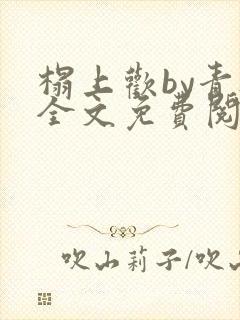 榻上歡by青
全文免費閱
吹山莉子/吹山